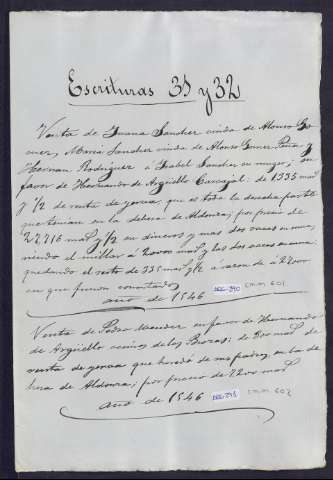 Escrituras 31 y 32
Venta de Juana Sanchez viuda de Alonso Go
mez, Maria Sanchez viuda de Alonso Gomez Peña y
Hernan Rodriguez é Isabel Sanchez su muger; en
favor de Hernando de Argüello Carvajal de 1335 mrs
y 1/2 de renta de yerva, que es toda la derecha parte
que tenian en la dehesa de Aldonza, por precio de
27716 mrs y 1/2 en dineros y mas dos vacas en
niendo el millar á 20000 mrs y las dos vacas
quedando el resto de 335 mrs y 1/2 a razon de á 22000
en que fueron
año de 1546
DEC-390 C.M.M. 601
Venta de Pedro en favor de Hernando
de Argüello vecinos de las Brozas; de 500 mrs de
renta de yerva que heredó de sus padres, en la de
hesa de Aldonza; por precio de 2200 mrs
año de 1546
DEC-391 C.M.M. 602